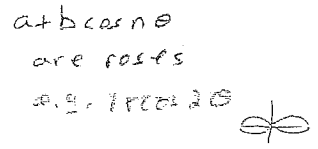 a+b cos nθ
are roses
e.g. 1+cos 2θ